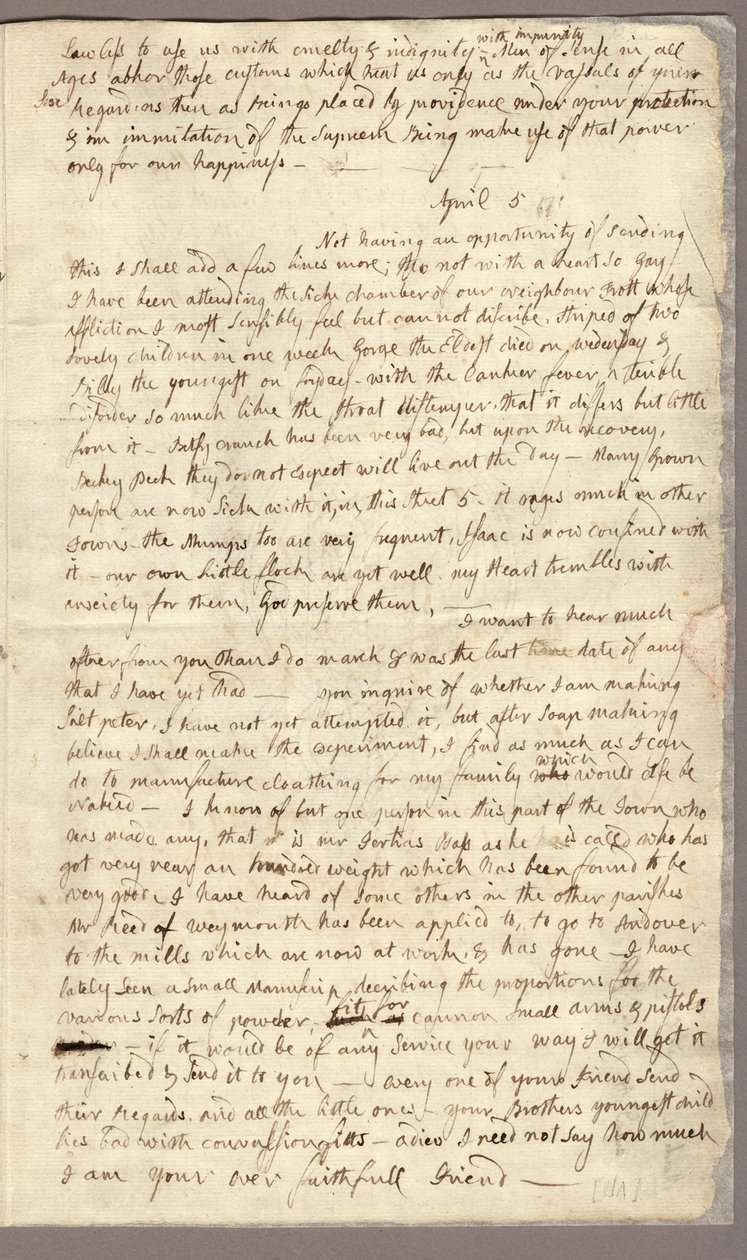 Lawless to use us with cruelty & indignity with impunity - Men of Sense in all
Ages abhor those customs which treat us only as the vassals of your
Sex
Regard us then as Beings placed by providence under your protection
& in immitation of the Supreem Being make use of that power
only for our happiness -
April 5
Not having an opportunity of sending
this I shall add a few lines more; tho not with a heart so gay
I have been attending the sick chamber of our neighbour Trott whose
affliction I most sensibly feel but cannot discribe, striped of two
lovely children in one week Gorge the Eldest died on wedensday &
Billy the youngest on fryday - with the Canker fever, a terible
disorder so much like the throat distemper, that it differs but little
from it - Betsy Cranch has been very bad, but upon the recovery,
Becky Peck they do not expect will live out the day - Many grown
person are now sick with it, in this street 5. it rages much in other
Towns the Mumps too are very frequent, Isaac is now confined with
it - our own little flock are yet well. my Heart trembles with
anxiety for them, God preserve them,
I want to hear much
oftner from you than I do march 8 was the last time date of any
that I have yet had - you inquire of whether I am making
Salt peter, I have not yet attempted it, but after Soap making
believe I shall make the experiment, I find as much as I can
do to manufacture cloathing for my family who which would else be
Naked - I know of but one person in this part of the Town who
has made any, that is mr Tertias Bass as he is called who has
got very near an hundred weight which has been found to be
very good, I have heard of some others in the other parishes
Mr Reed of weymouth has been applied to, to go to Andover
to the mills which are now at work, & has gone - I have
lately seen a small Manuscrip decribing the proportions for the
various sorts of powder, fit for cannon small arms & pistols
- if it would be of any Service your way I will get it
transcribed & send it to you - every one of your Friend send
their Regards, and all the little ones - your Brothers youngest child
lies bad with convulsion fitts - adieu I need not say how much
I am your ever faithfull Friend -
[AA]